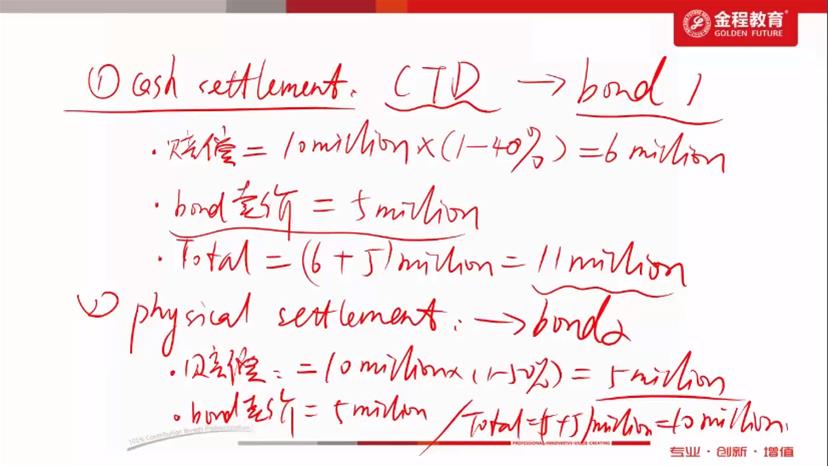 金程教育
GOLDEN FUTURE
① cash settlement. CTD → bond 1
· 赔偿 = 10 million × (1-40%) = 6 million
· bond 卖价 = 5 million
· Total = (6 + 5) million = 11 million
② physical settlement: → bond 2
· 赔偿: = 10 million × (1-50%) = 5 million
· bond 卖价 = 5 million / Total = (5+5) million = 10 million.
100% Contribution Breeds Professionalism
PROFESSIONAL·INNOVATIVE·VALUE-CREATING
专业·创新·增值